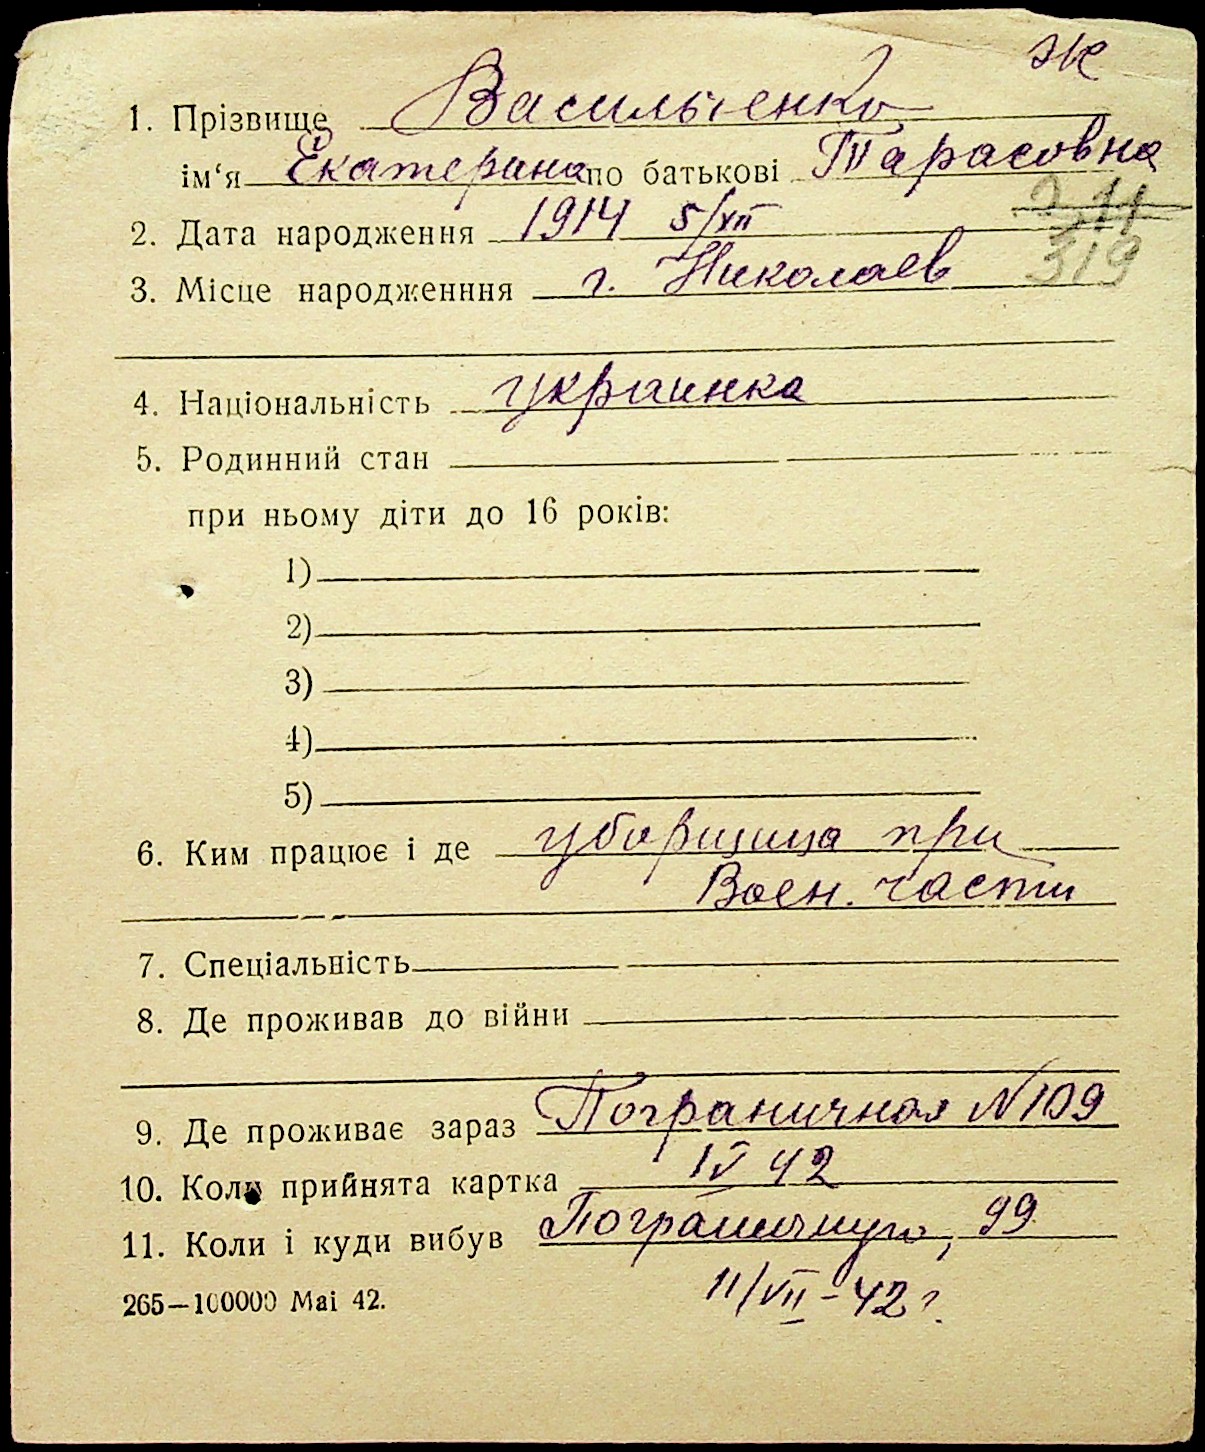 Же
1. Прізвище Васильченко
ім‘я Екатерина по батькові Тарасовна
2. Дата народження 1914 5/VII
211
3. Місце народженння г. Николаев
319
4. Національність украинка
5. Родинний стан
при ньому діти до 16 років:
1)
2)
3)
4)
5)
6. Ким працює і де уборщица при
Воен. части
7. Спеціальність
8. Де проживав до війни
9. Де проживає зараз Пограничная N 109
10. Коли прийнята картка IV 42
11. Коли і куди вибув Пограничную, 99
265—100000 Mai 42.
11/VII-42 г.